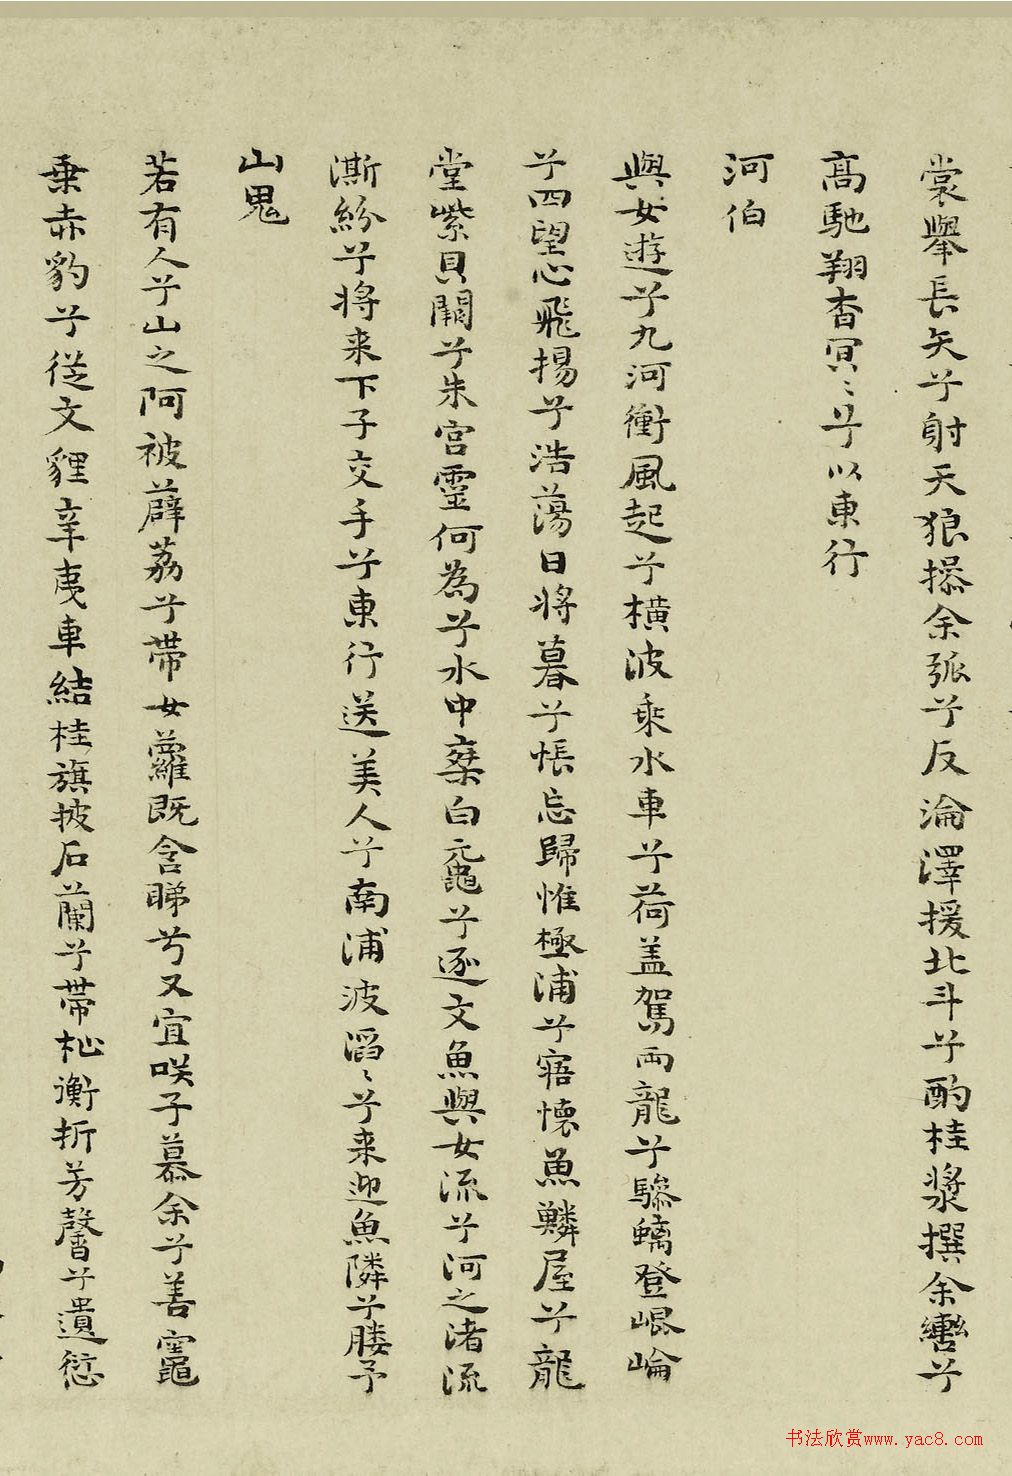 裳舉長矢兮射天狼操余弧兮反淪澤援北斗兮酌桂漿撰余轡兮
高馳翔杳冥〻兮以東行
河伯
與女遊兮九河衝風起兮橫波乘水車兮荷盖駕兩龍兮驂螭登崐崘
兮四望心飛揚兮浩蕩日將暮兮悵忘歸惟極浦兮寤懷魚鱗屋兮龍
堂紫貝闕兮朱宮靈何為兮水中椉白黿兮逐文魚與女流兮河之渚流
澌紛兮将来下子交手兮東行送美人兮南浦波滔〻兮来迎魚隣兮媵予
山鬼
若有人兮山之阿被薜荔兮帶女蘿既含睇兮又宜咲子慕余兮善窈
乗赤豹兮從文貍辛夷車結桂旗披石蘭兮帶杜衡折芳馨兮遺
书法欣赏www.yac8.com